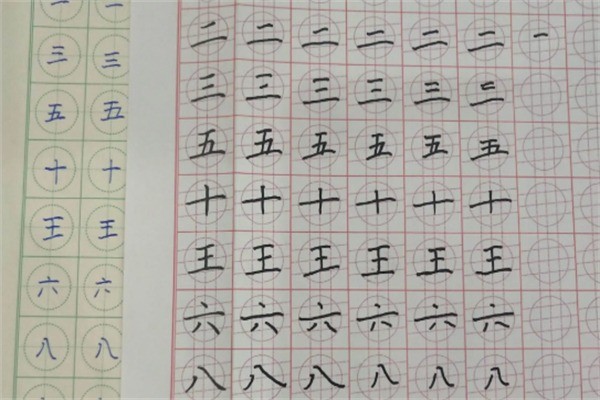 三 三
五 五
十 十
王 王
六 六
八 八
二 二 二 二 二 二 一
三 三 三 三 三 三
五 五 五 五 五 五
十 十 十 十 十 十
王 王 王 王 王 王
六 六 六 六 六 六
八 八 八 八 八 八